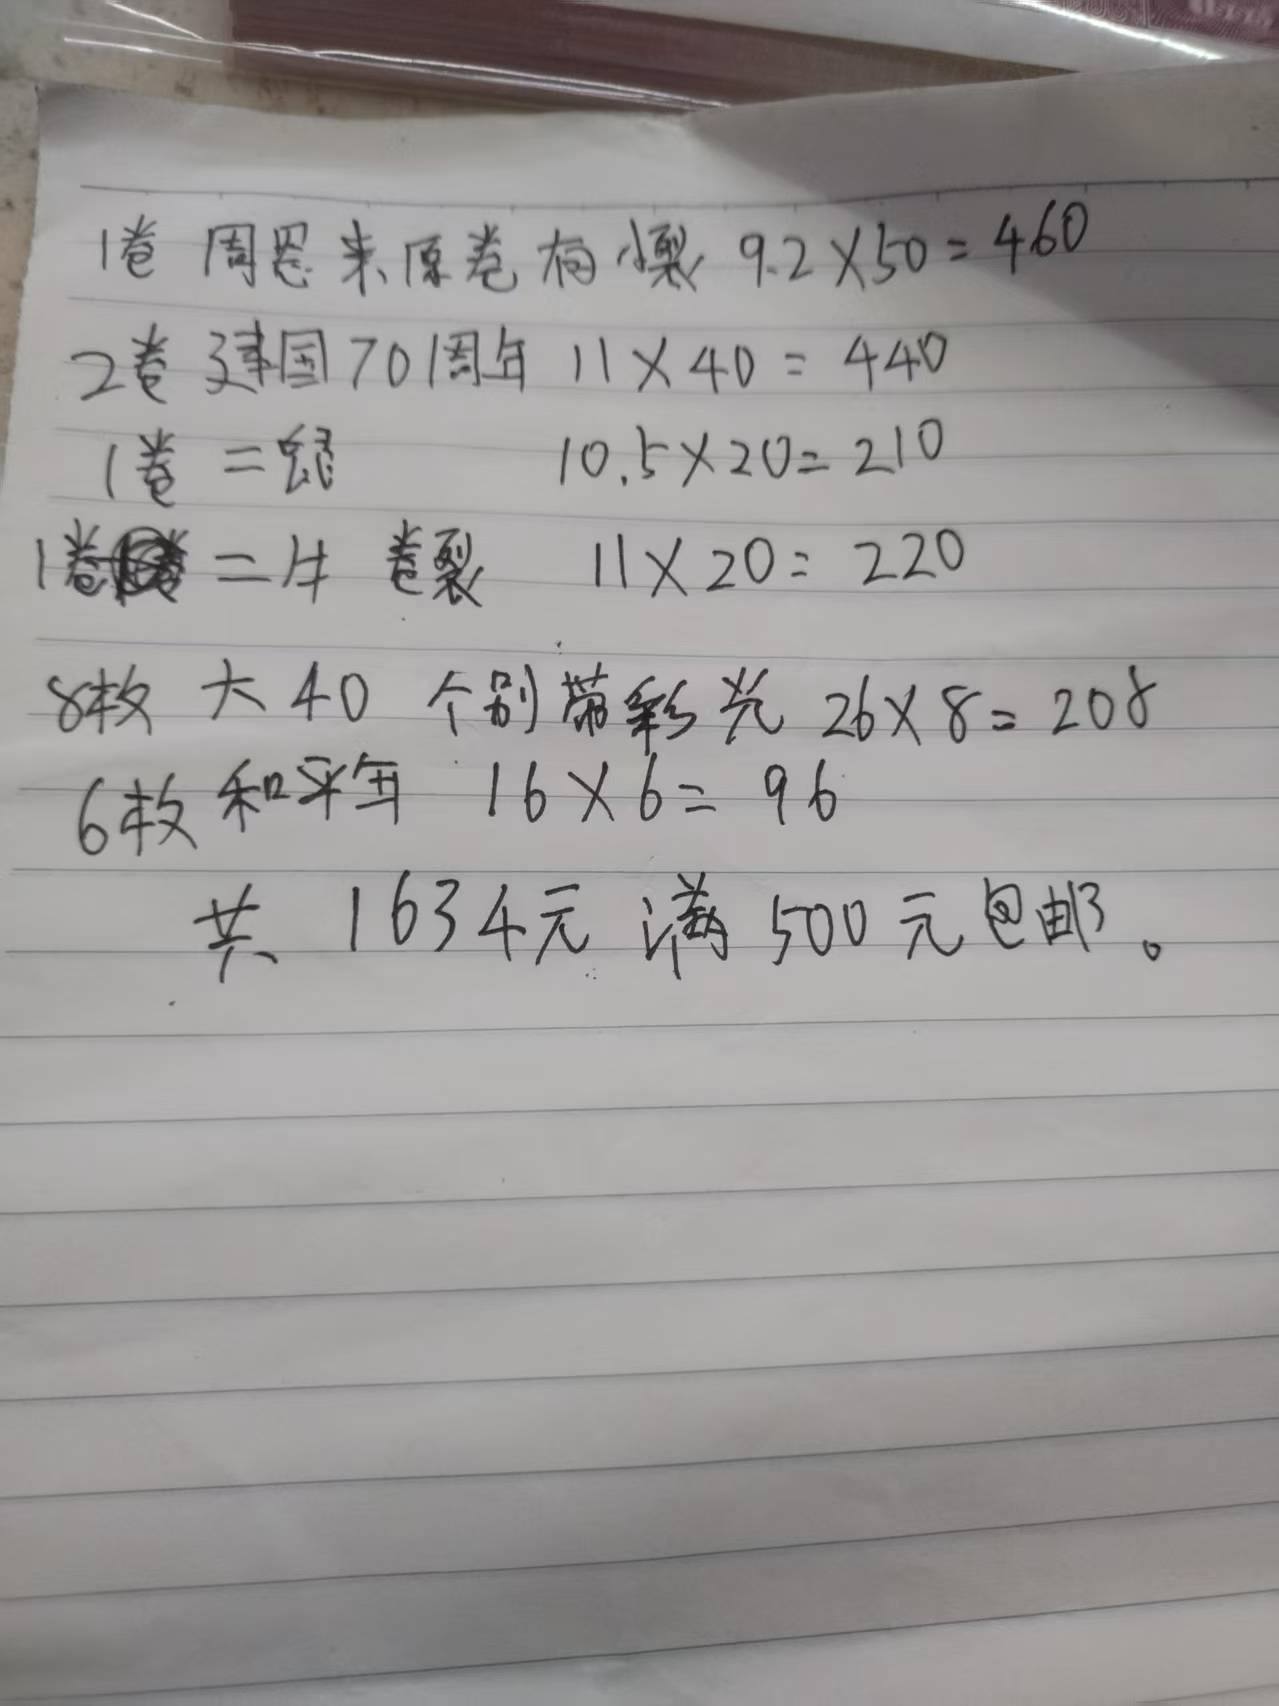 1卷 周恩来原卷有小裂 9.2×50=460
2卷 建国70周年 11×40=440
1卷 二鼠 10.5×20=210
1卷 二牛 卷裂 11×20=220
8枚 大40 个别带彩光 26×8=208
6枚 和平年 16×6=96
共 1634元 满500元包邮。